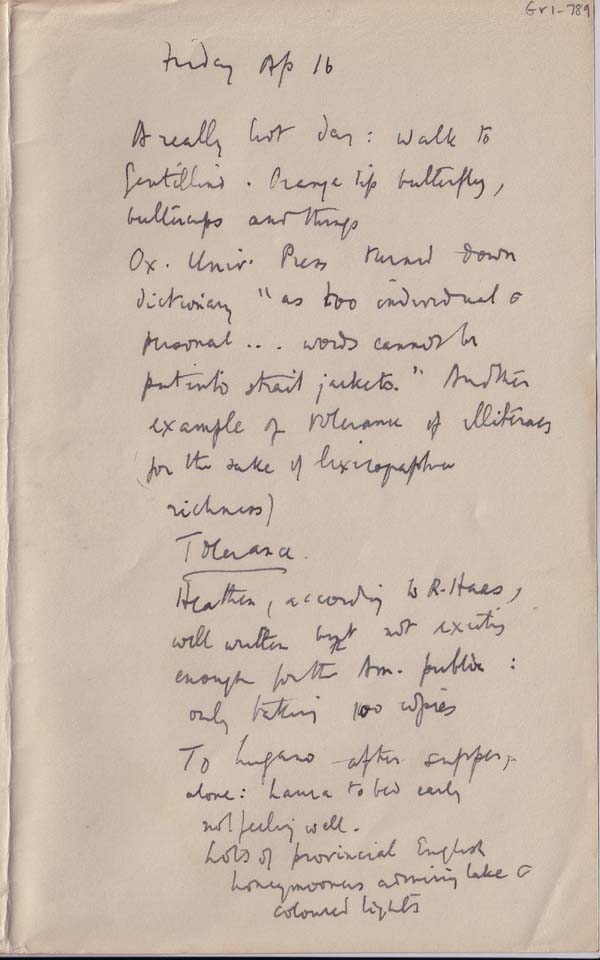 Gr1-789
Friday Ap 16
A really hot day: walk to
Gentilino. Orange tip butterfly,
buttercups and things
Ox. Univ. Press turned down
dictionary "as too individual &
personal... words cannot be
put into strait jackets." Another
example of tolerance of illiteracy
(for the sake of lexicographer
richness)
Tolerance.
Heathen, according to R. Haas,
well written but not exciting
enough for the Am. public:
only taking 100 copies
To Lugano after supper,
alone: Laura to bed early
not feeling well.
Lots of provincial English
honeymooners admiring lake &
coloured lights